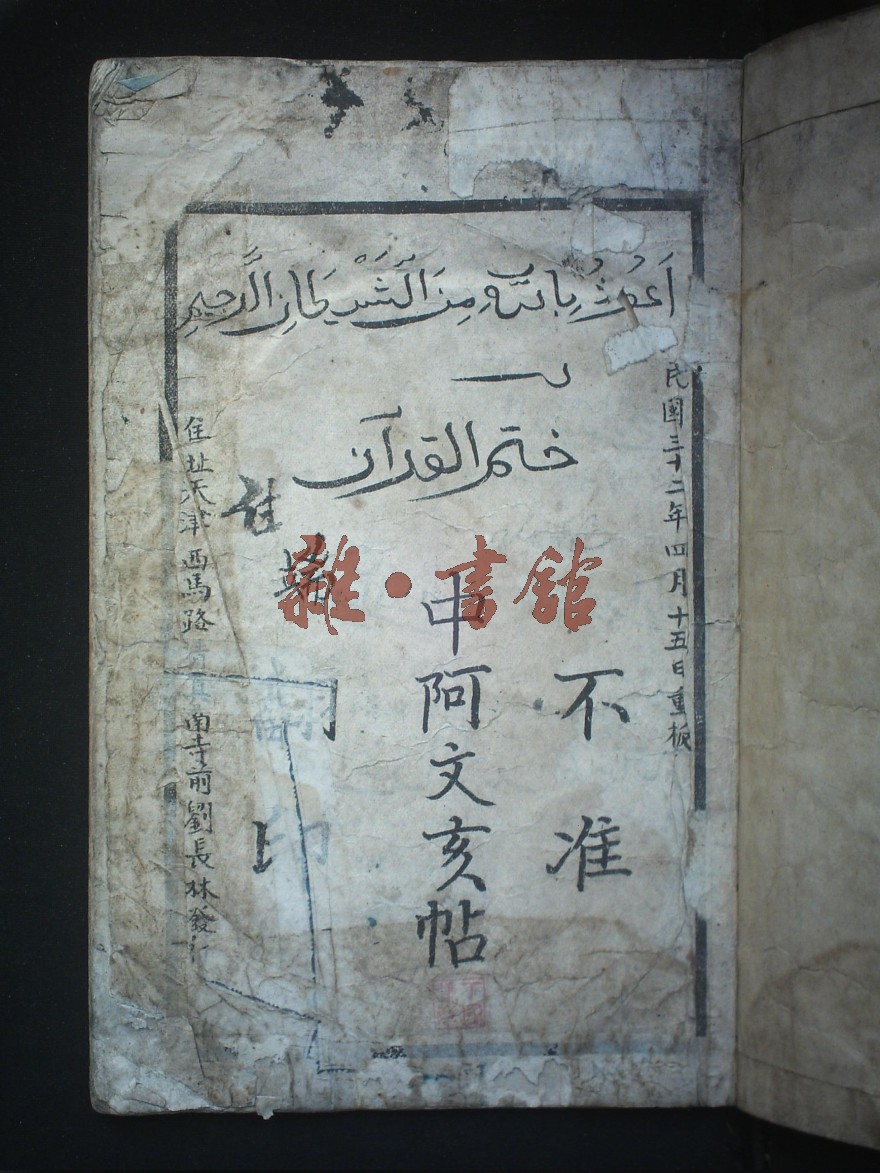 اَعُوْذُ بِاللّٰهِ مِنَ الشَّيْطَانِ الرَّجِيْمِ
ختم القرآن
民國三十二年四月十五日重板
不准
中阿文亥帖
印
住址天津西馬路清真南寺前劉長林發行
雜·書館